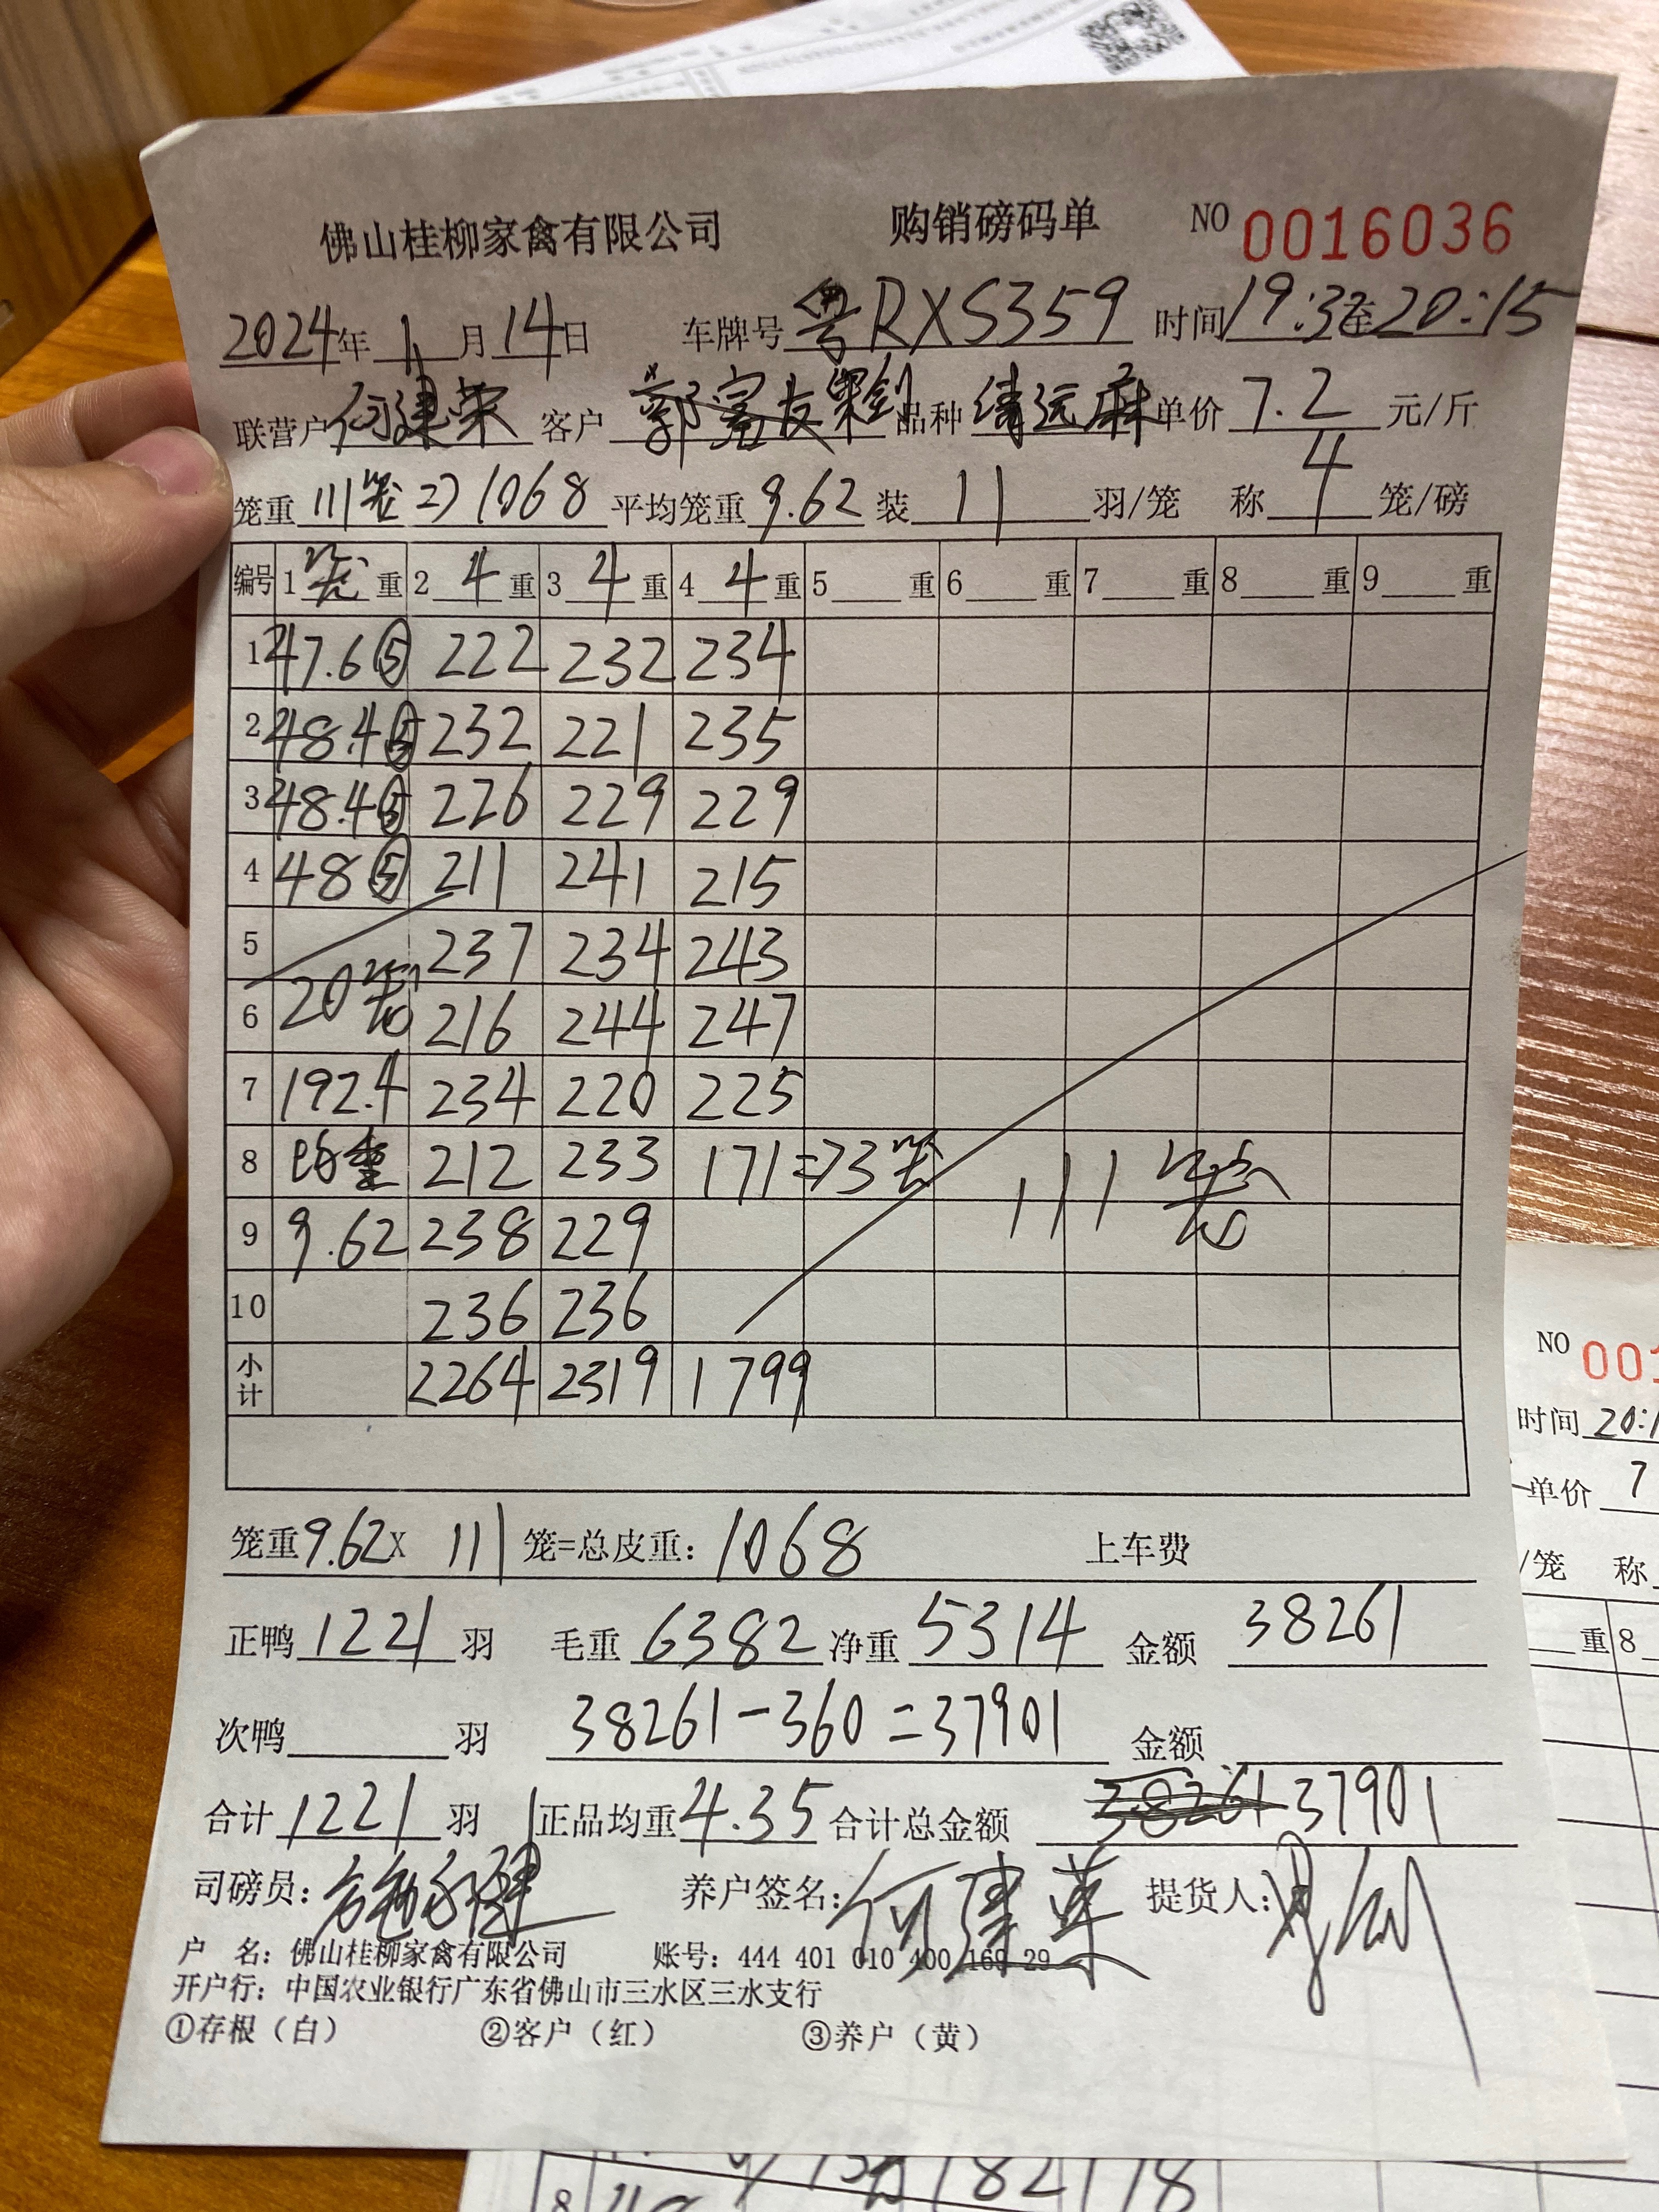 佛山桂柳家禽有限公司 购销磅码单 NO 0016036
2024年 1 月 14 日 车牌号 粤RXS359 时间 19:3 至 20:15
联营户 何建荣 客户 郭富友 品种 清远麻 单价 7.2 元/斤
笼重 111笼 1068 平均笼重 9.62 装 11 羽/笼 称 4 笼/磅
编号 1 笼 重 2 4 重 3 4 重 4 4 重 5 重 6 重 7 重 8 重 9 重
1 47.6⑤ 222 232 234
2 48.4⑤ 232 221 235
3 48.4⑤ 226 229 229
4 48⑤ 211 241 215
5 237 234 243
6 20笼 216 244 247
7 192.4 234 220 225
8 均重 212 233 171=73笼 111笼
9 9.62 238 229
10 236 236
小计 2264 2319 1799
笼重 9.62 X 111 笼=总皮重: 1068 上车费
正鸭 1221 羽 毛重 6382 净重 5314 金额 38261
次鸭 羽 38261-360=37901 金额
合计 1221 羽 正品均重 4.35 合计总金额 38261 37901
司磅员: 养户签名: 何建荣 提货人:
户 名: 佛山桂柳家禽有限公司 账号: 444 401 010 400 169 29
开户行: 中国农业银行广东省佛山市三水区三水支行
①存根（白） ②客户（红） ③养户（黄）
NO 001
时间 20:1
单价 7
/笼 称
重 8
8 182 178